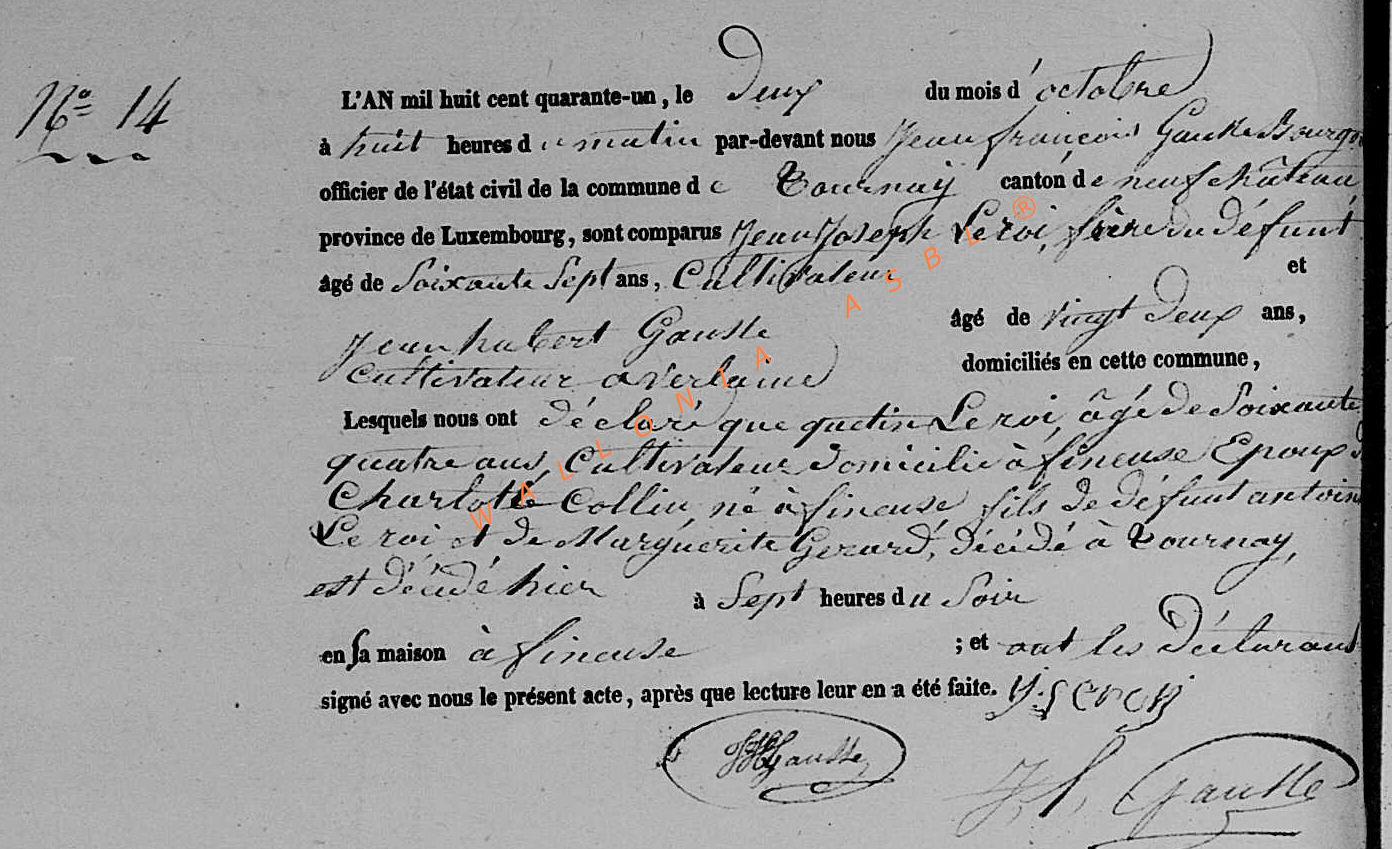 N.° 14
L'AN mil huit cent quarante-un, le Deux du mois d'octobre
à huit heures du matin par-devant nous Jean françois Gausse Bourg
officier de l'état civil de la commune de Tournay canton de neufchâteau
province de Luxembourg, sont comparus Jean Joseph Leroi, frère du défunt
âgé de Soixante Sept ans, Cultivateur et
Jean hubert Gausse âgé de vingt Deux ans,
Cultivateur a verlaine domiciliés en cette commune,
Lesquels nous ont déclaré que quetin Leroi, âgé de Soixante
quatre ans, Cultivateur Domicilié à fineuse Epoux
Charlotte Collin né à fineuse fils de défunt antoine
Leroi et de Marguérite Gerard, décédé à Tournay,
est décédé hier à Sept heures du Soir
en sa maison à fineuse ; et ont les déclarant
signé avec nous le présent acte, après que lecture leur en a été faite. J.j Leroy
JH Gausse
J, f, Gausse
WALLONIA ASBL ®